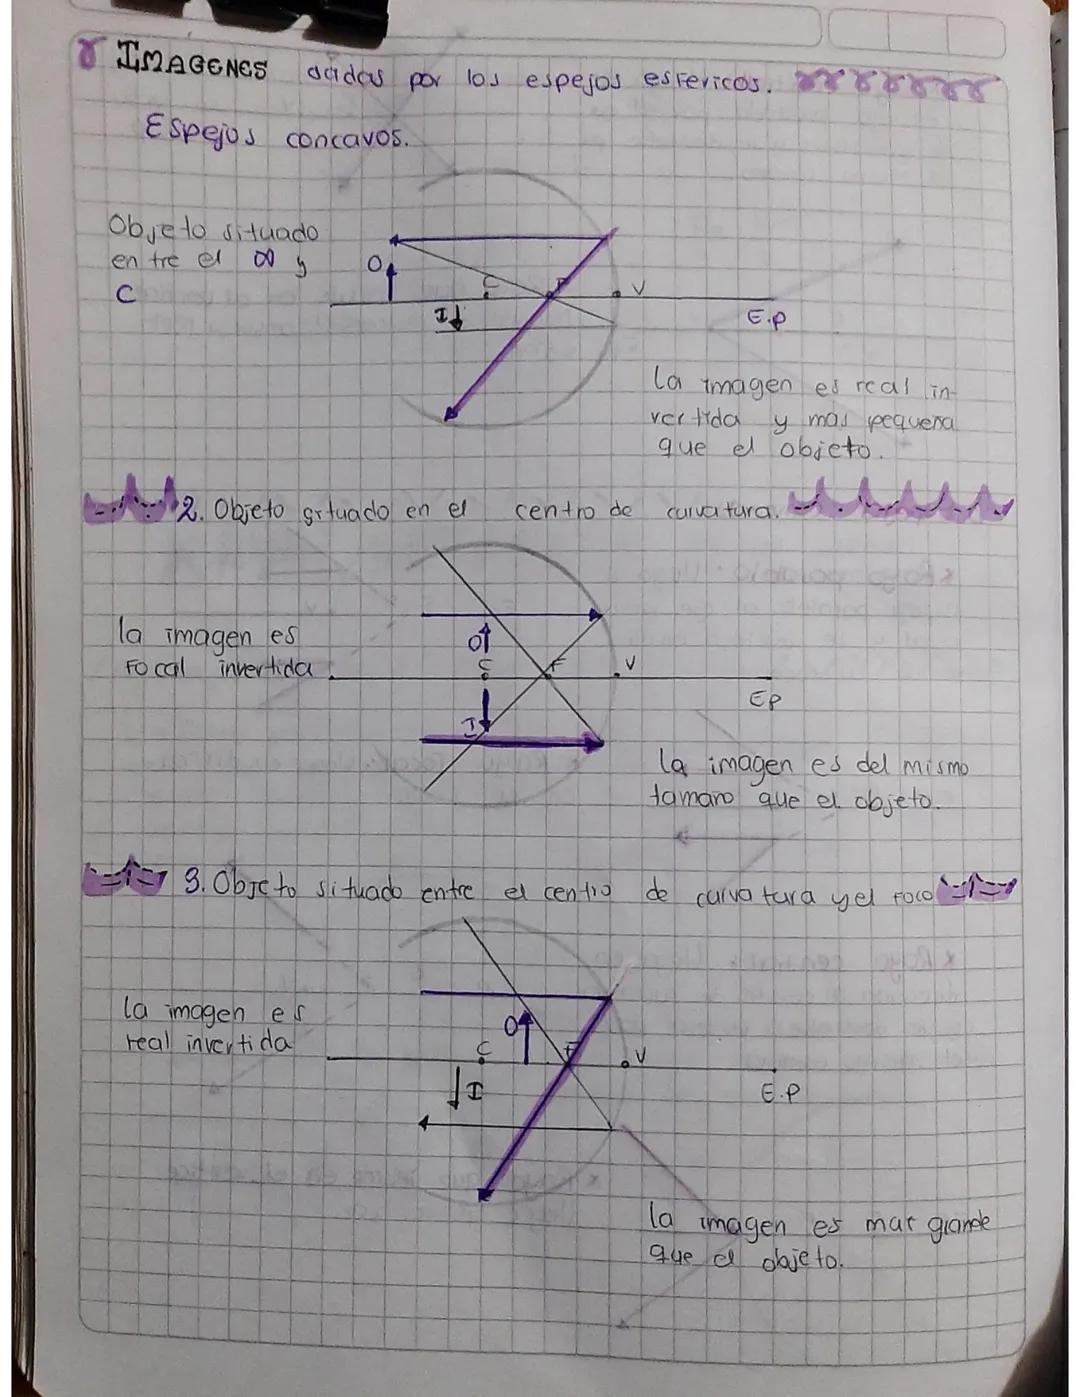 IMAGENES dadas por los espejos esfericos.
Espejos concavos.
Objeto situado
entre el ∞ y
C
O
C
F
V
I
E.P
la imagen es real in-
vertida y mas pequeña
que el objeto.
2. Objeto situado en el centro de curvatura.
la imagen es
Focal invertida
O
C
F
V
I
EP
la imagen es del mismo
tamaño que el objeto.
3. Objeto situado entre el centro de curvatura y el foco
la imagen es
real invertida
O
C
F
V
I
E.P
la imagen es mas grande
que el objeto.